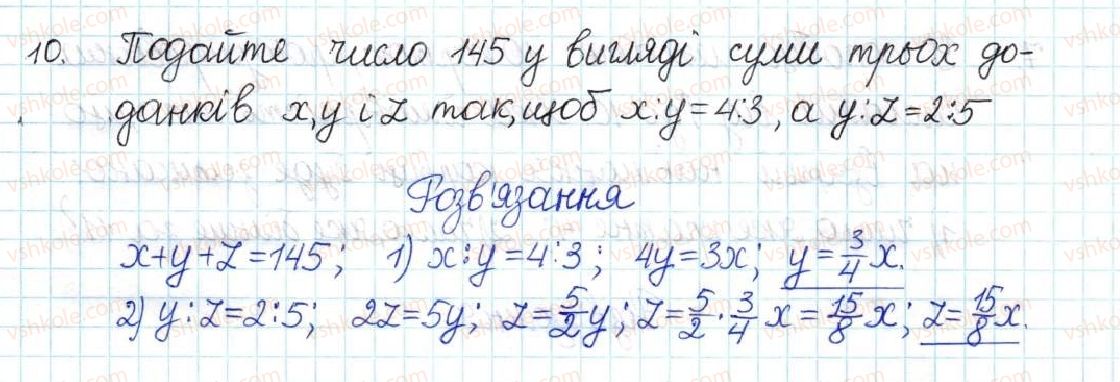 10. Подайте число 145 у вигляді суми трьох до-
данків x, y і z так, щоб x:y=4:3, а y:z=2:5
Розв'язання
x+y+z=145; 1) x:y=4:3; 4y=3x; y=3/4x.
2) y:z=2:5; 2z=5y; z=5/2y; z=5/2·3/4x=15/8x; z=15/8x.